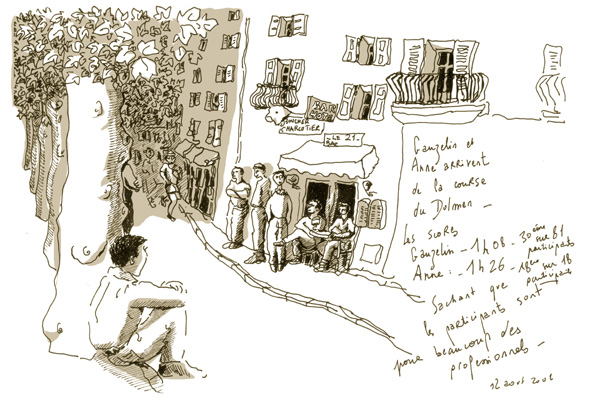 BOUCHER
CHARCUTIER
LE 21
BAR
Gauzelin et
Anne arrivent
de la course
du Dolmen —
Les scores
Gauzelin - 1h08 - 30ème sur 81
participants
Anne : - 1h26 - 18ème sur 18
participants
Sachant que
les participants sont
pour beaucoup des
professionnels —
12 août